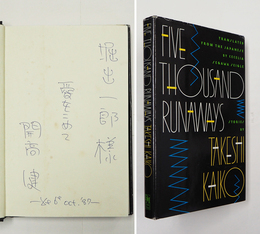 堀出一郎様
愛をこめて
開高健
FIVE
THOUSAND
RUNAWAYS
TAKESHI
KAIKO
TRANSLATED
FROM THE JAPANESE
BY CECILIA
SEGAWA SEIGLE
STORIES
BY
FIVE THOUSAND RUNAWAYS TAKESHI KAIKO